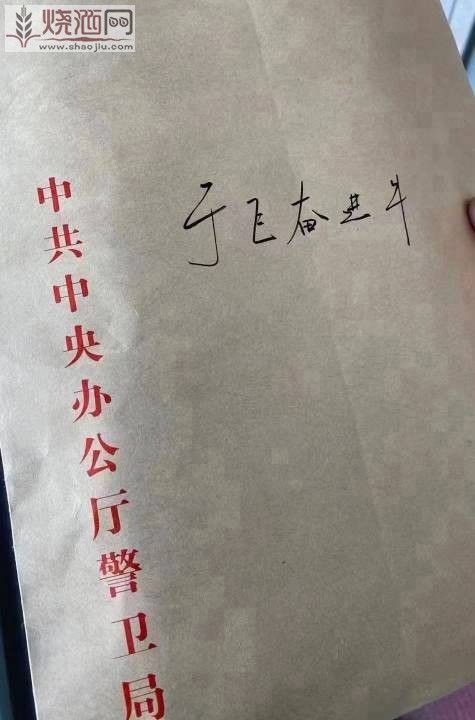 烧酒网
www.shaojiu.com
于奋进斗
中共中央办公厅警卫局